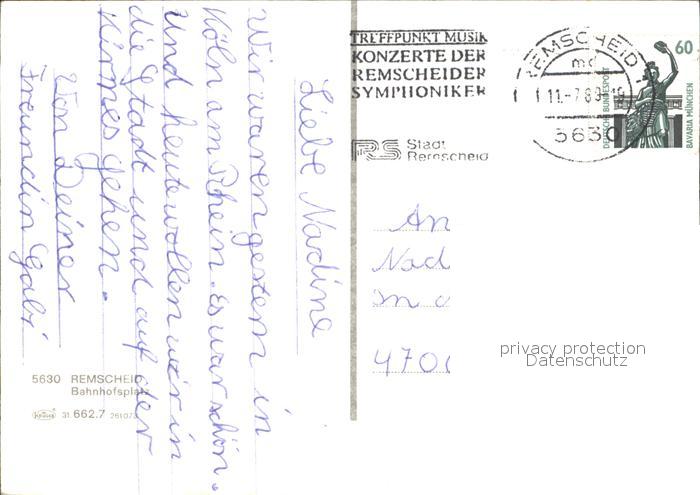 Liebe Nadine
Wir waren gestern in
Köln am Rhein. Es war schön.
Und heute wollen wir in
die Stadt und auf der
Kirmes gehen.
Von Deiner
Freundin Gabi
5630 REMSCHEID
Bahnhofsplatz
Krüger 31 662.7
TREFFPUNKT MUSIK
KONZERTE DER
REMSCHEIDER
SYMPHONIKER
RS Stadt
Remscheid
REMSCHEID 1
md
5630
60
DEUTSCHE BUNDESPOST
BAVARIA MÜNCHEN
An
Nad
470
privacy protection
Datenschutz